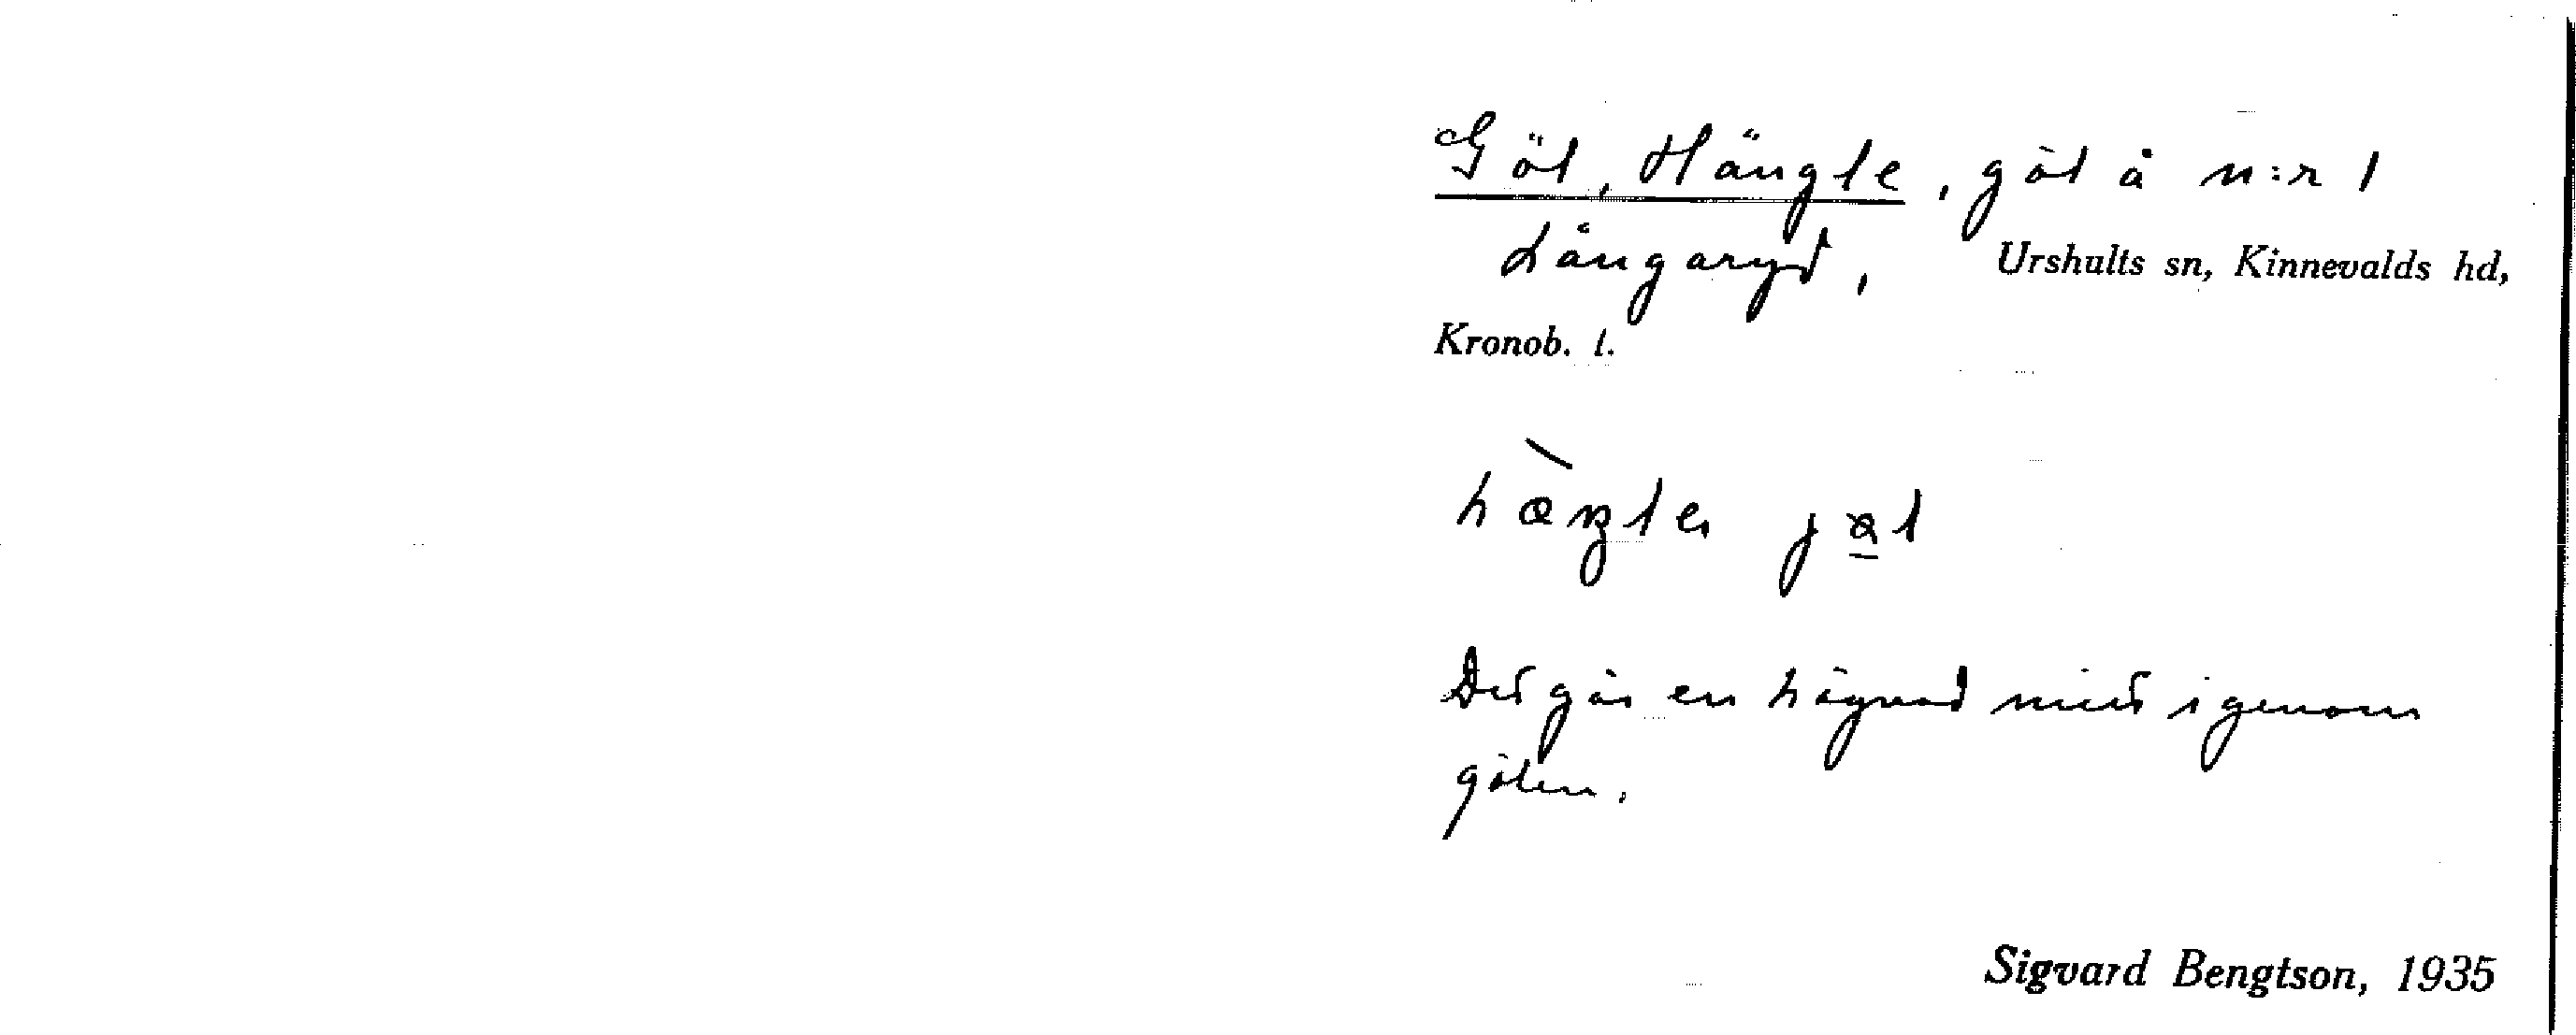 Göl, Hängle, göl å n:r 1
Långaryd, Urshults sn, Kinnevalds hd,
Kronob. l.
Det går en hägnad mitt igenom
gölen.
Sigvard Bengtson, 1935